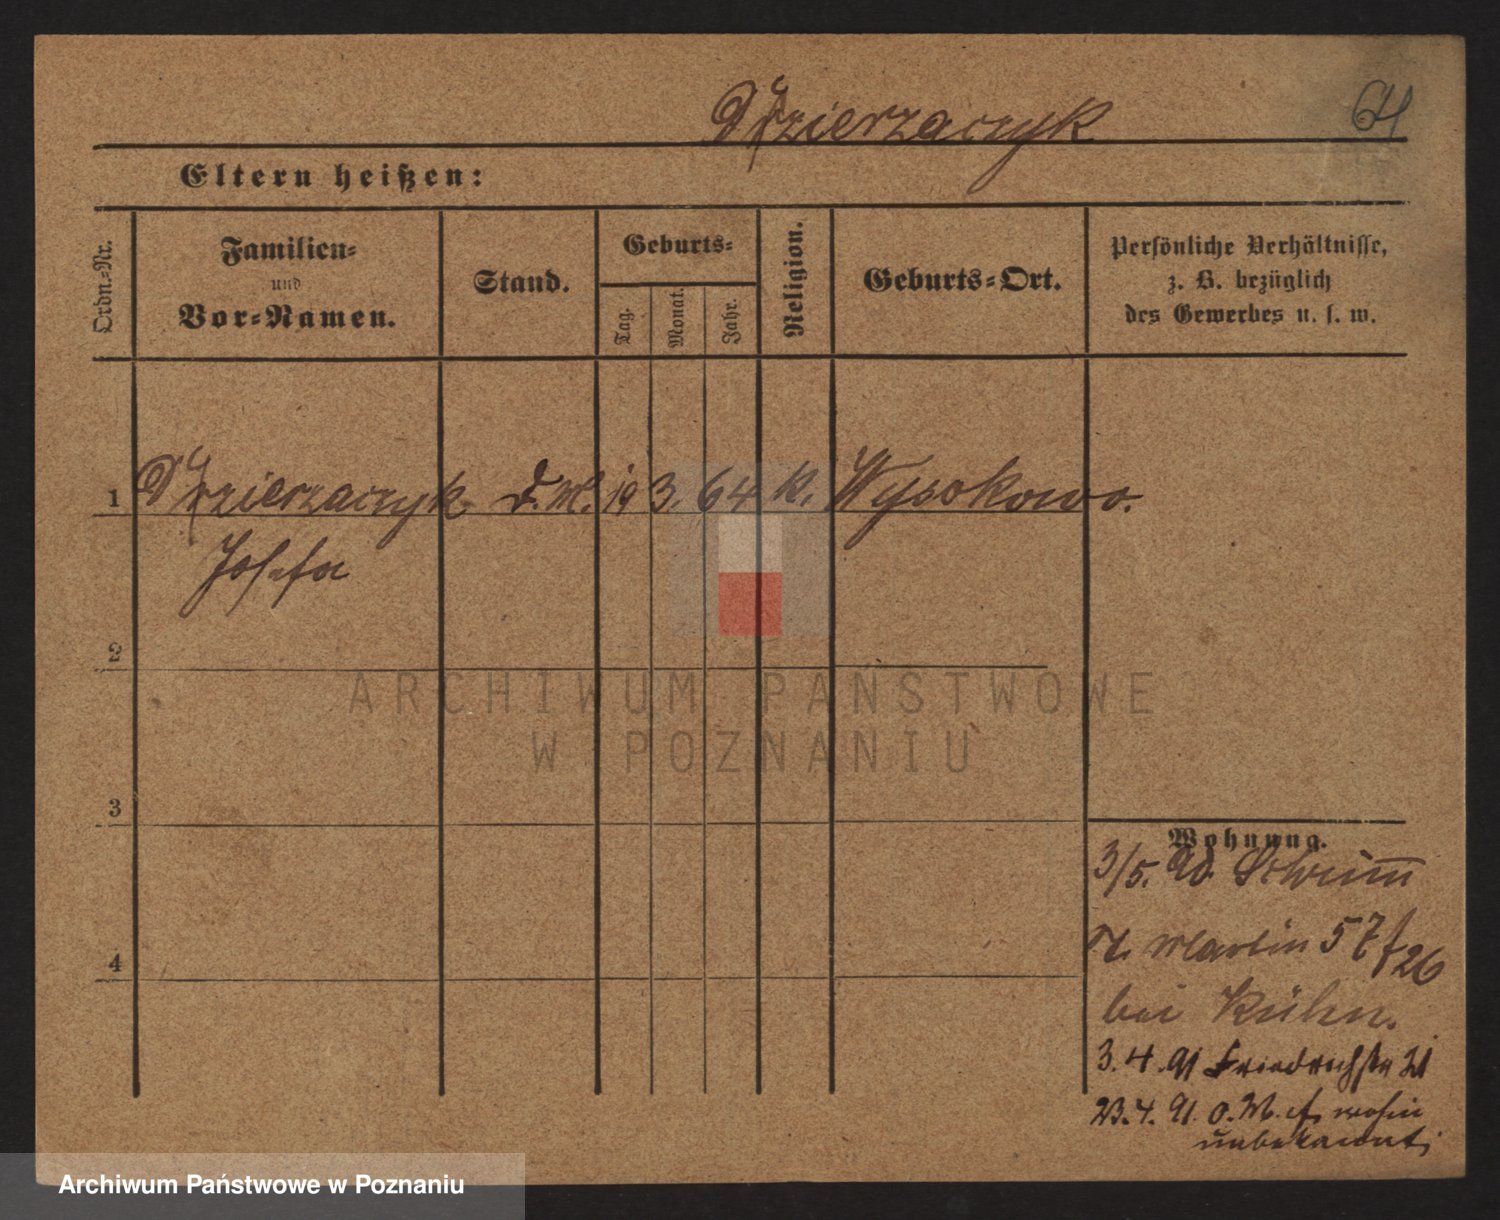 Dzierzaczyk 64
Eltern heißen:
Ordn.-Nr.
Familien-
und
Vor-Namen.
Stand.
Geburts-
Tag.
Monat.
Jahr.
Religion.
Geburts-Ort.
Persönliche Verhältnisse,
z. B. bezüglich
des Gewerbes u. s. w.
1 Dzierzaczyk d. M. 19 3. 64 k. Wysokowo.
Josefa
2
3
4
Wohnung.
3/5. 90. Schrimm
Martin 57 f 26
bei Kühn.
3. 4. 91 Friedrichstr 21
23. 4. 91. o. M. wohin
unbekannt
ARCHIWUM PAŃSTWOWE
W POZNANIU
Archiwum Państwowe w Poznaniu